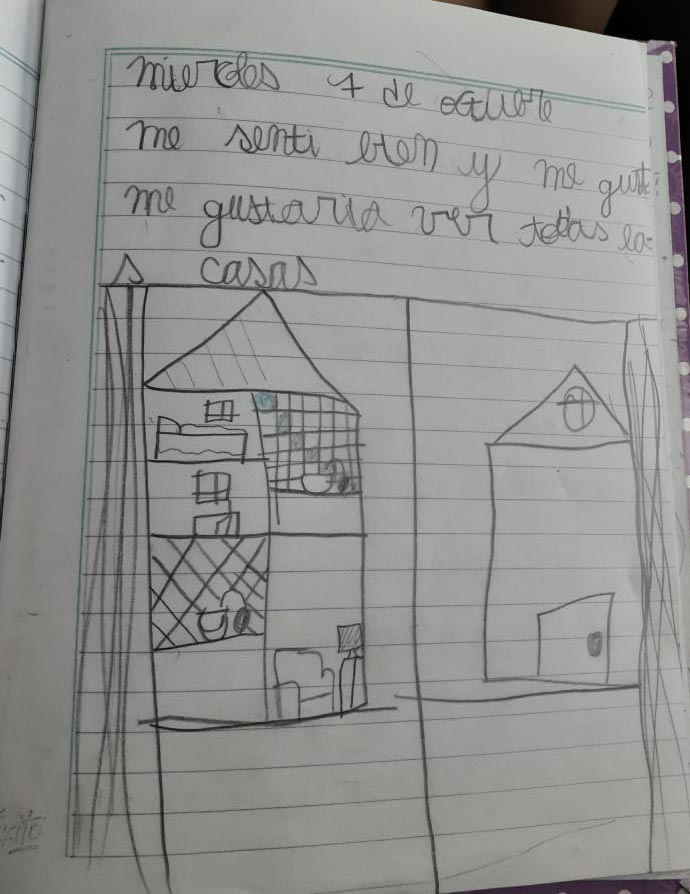 miercoles 7 de octubre
me senti bien y me gust
me gustaria ver todas la
s casas